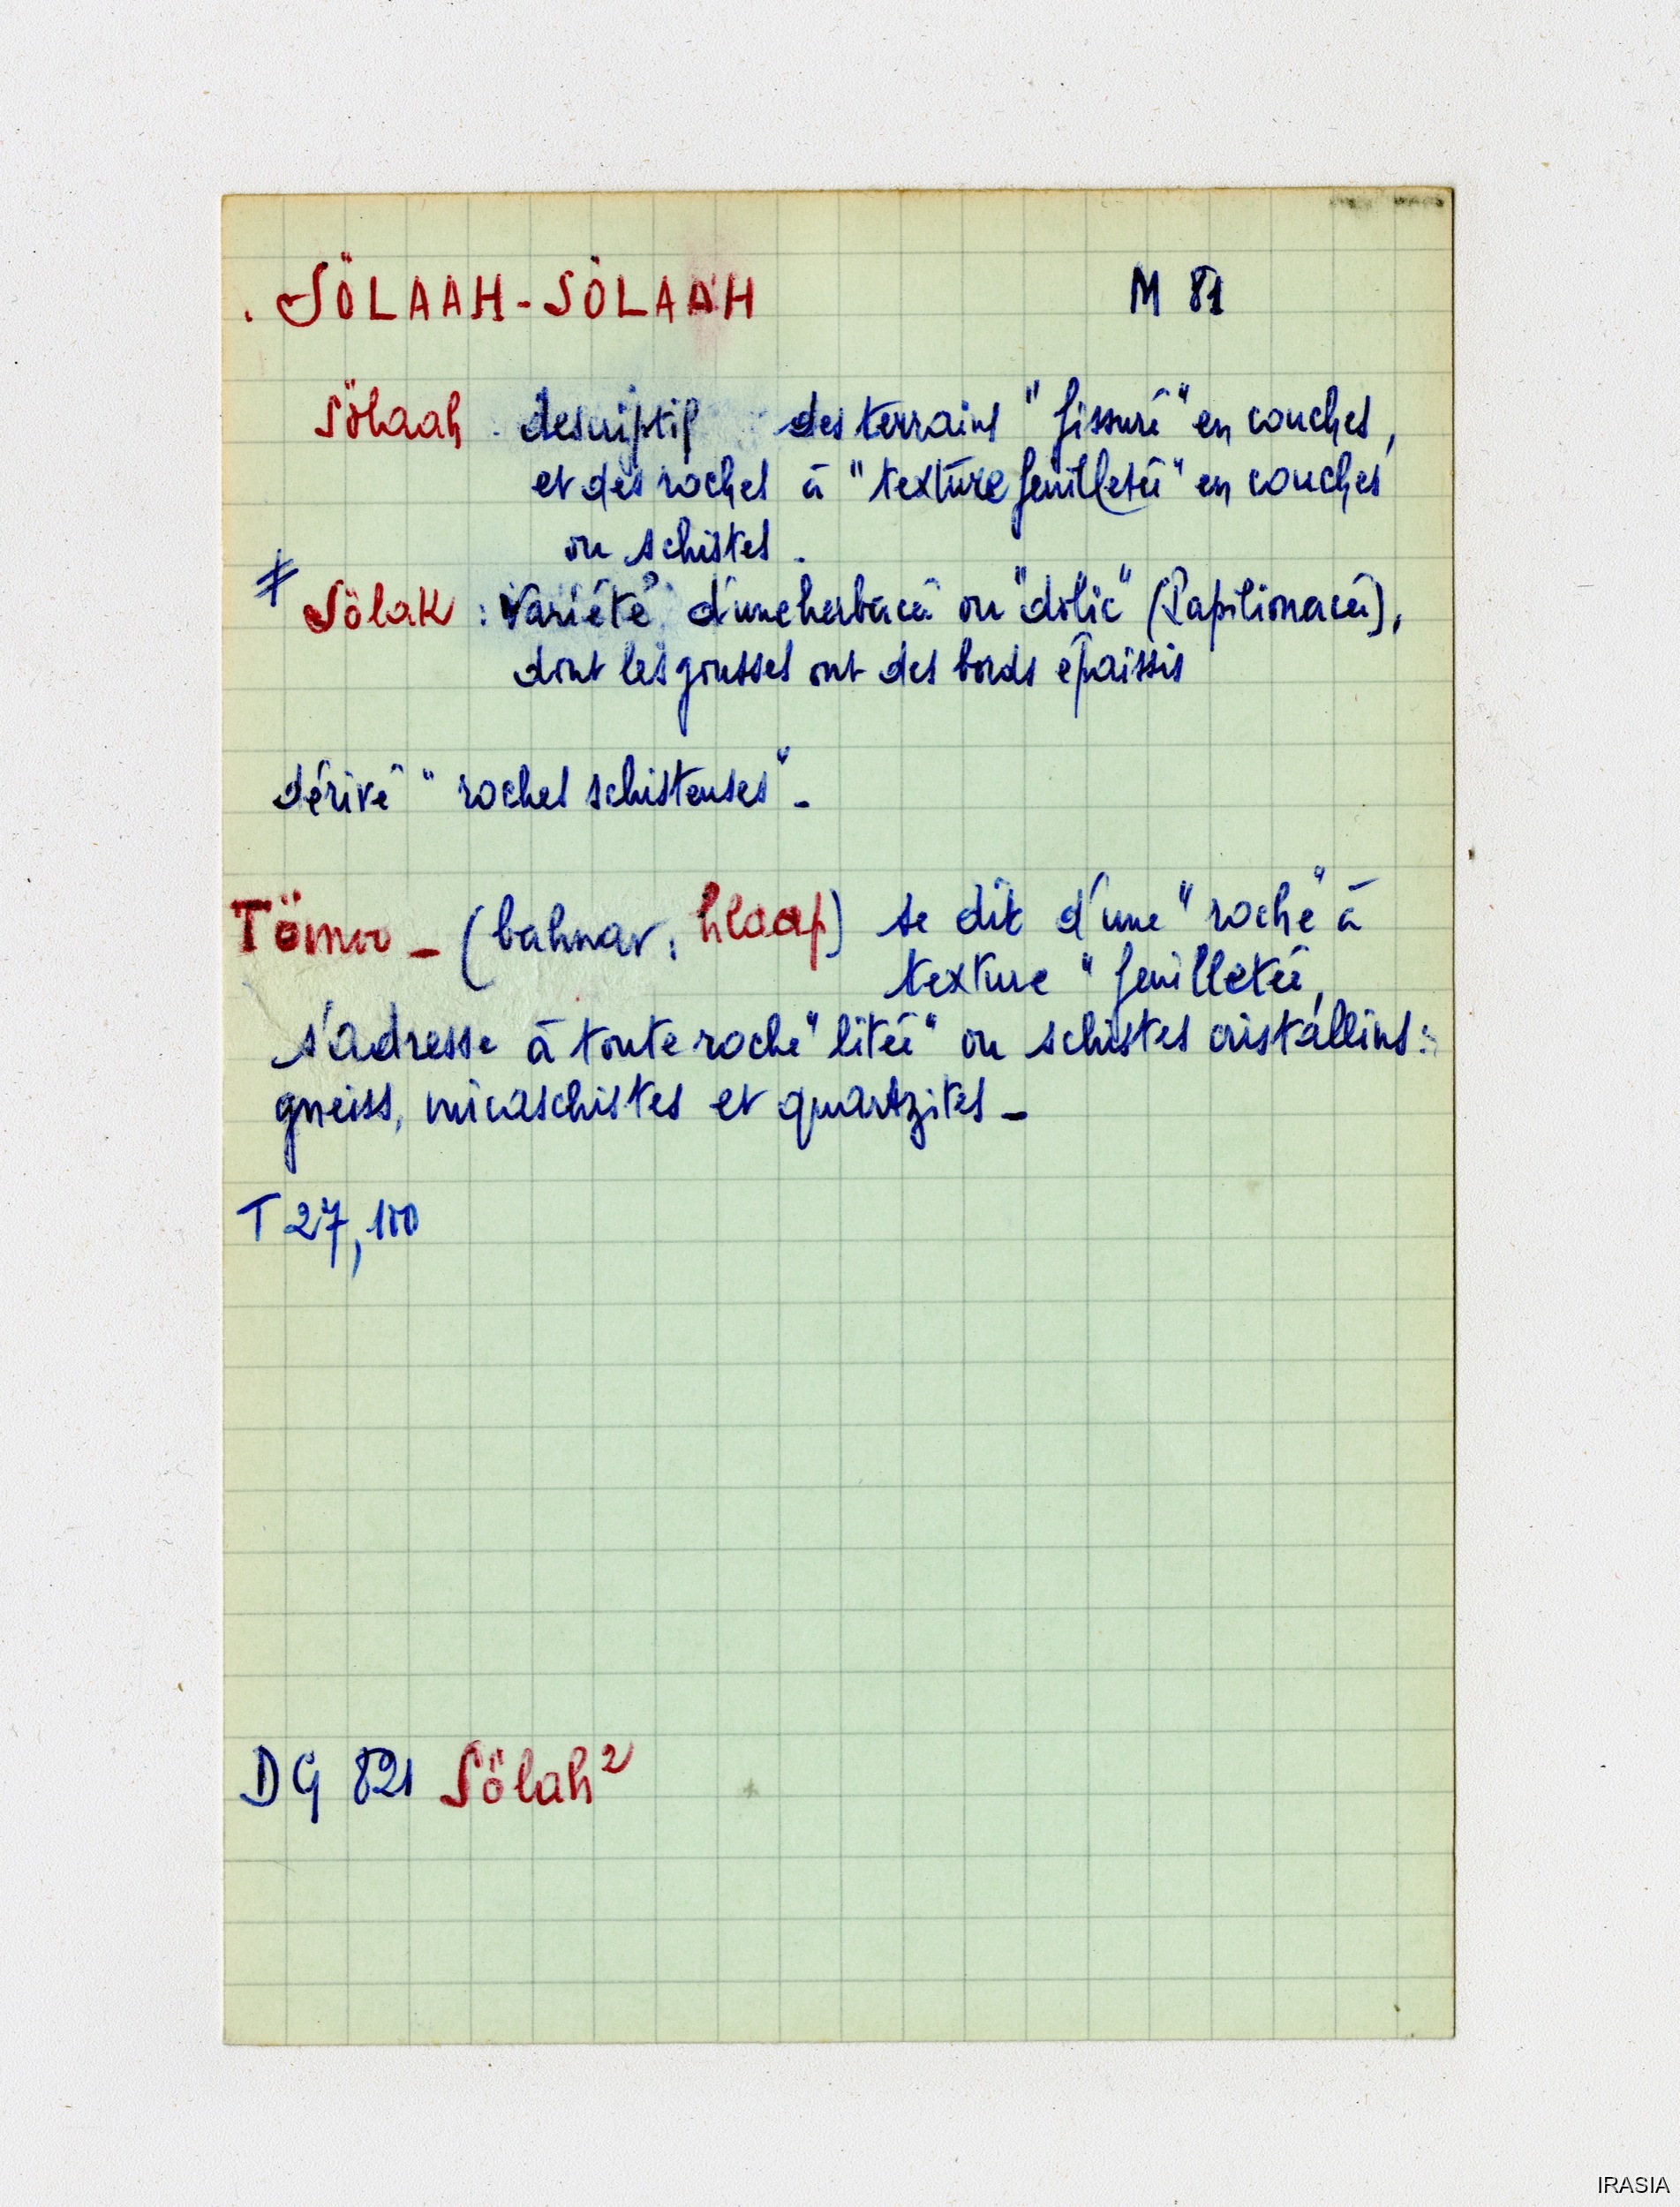 . SÖLAAH-SÖLAAH M 81
Sölaah descriptif des terrains "fissuré" en couches,
et des roches à "texture feuilletée" en couches
ou schistes.
≠ Sölak : Variété d'une herbacée ou "dolic" (Papilionacée),
dont les gousses ont des bords épaissis
dérivé "roches schisteuses" -
Tömoo - (bahnar : hlaap) se dit d'une "roche" à
texture "feuilletée,
s'adresse à toute roche "litée" ou schistes cristallins :
gneiss, micaschistes et quartzites -
T 27, 100
DG 821 Sölah²
IRASIA